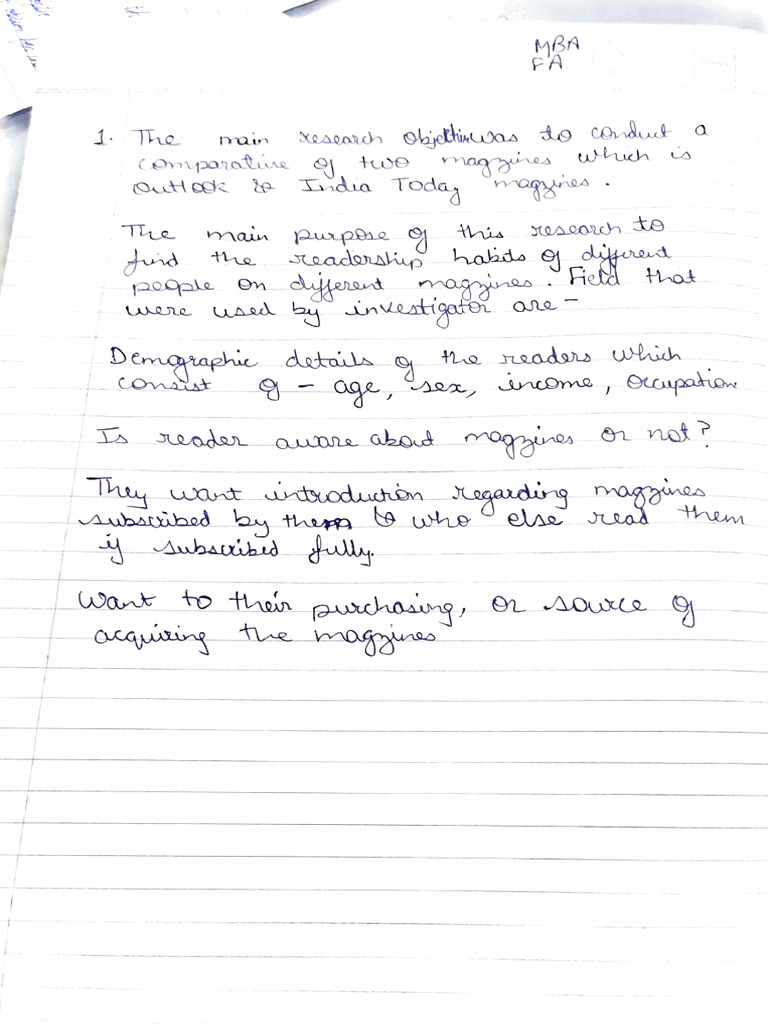 MBA
FA
1. The main research objective was to conduct a
comparative of two magzines which is
Outlook & India Today magzines.
The main purpose of this research to
find the readership habits of different
people on different magzines. Field that
were used by investigator are -
Demographic details of the readers which
consist of - age, sex, income, occupation
Is reader aware about magzines or not?
They want introduction regarding magzines
subscribed by them & who else read them
if subscribed fully.
Want to their purchasing, or source of
acquiring the magzines